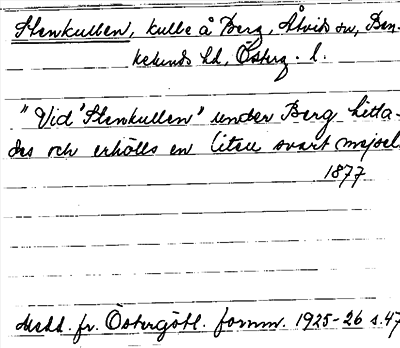 Stenkullen, kulle å Berg, Åtvids sn, Ban-
kekinds hd, Österg. l.
"Vid "Stenkullen" under Berg hitta-
des och erhölls en liten svart mejsel
1877
Medd. fr. Östergötl. fornm. 1925-26 s. 47